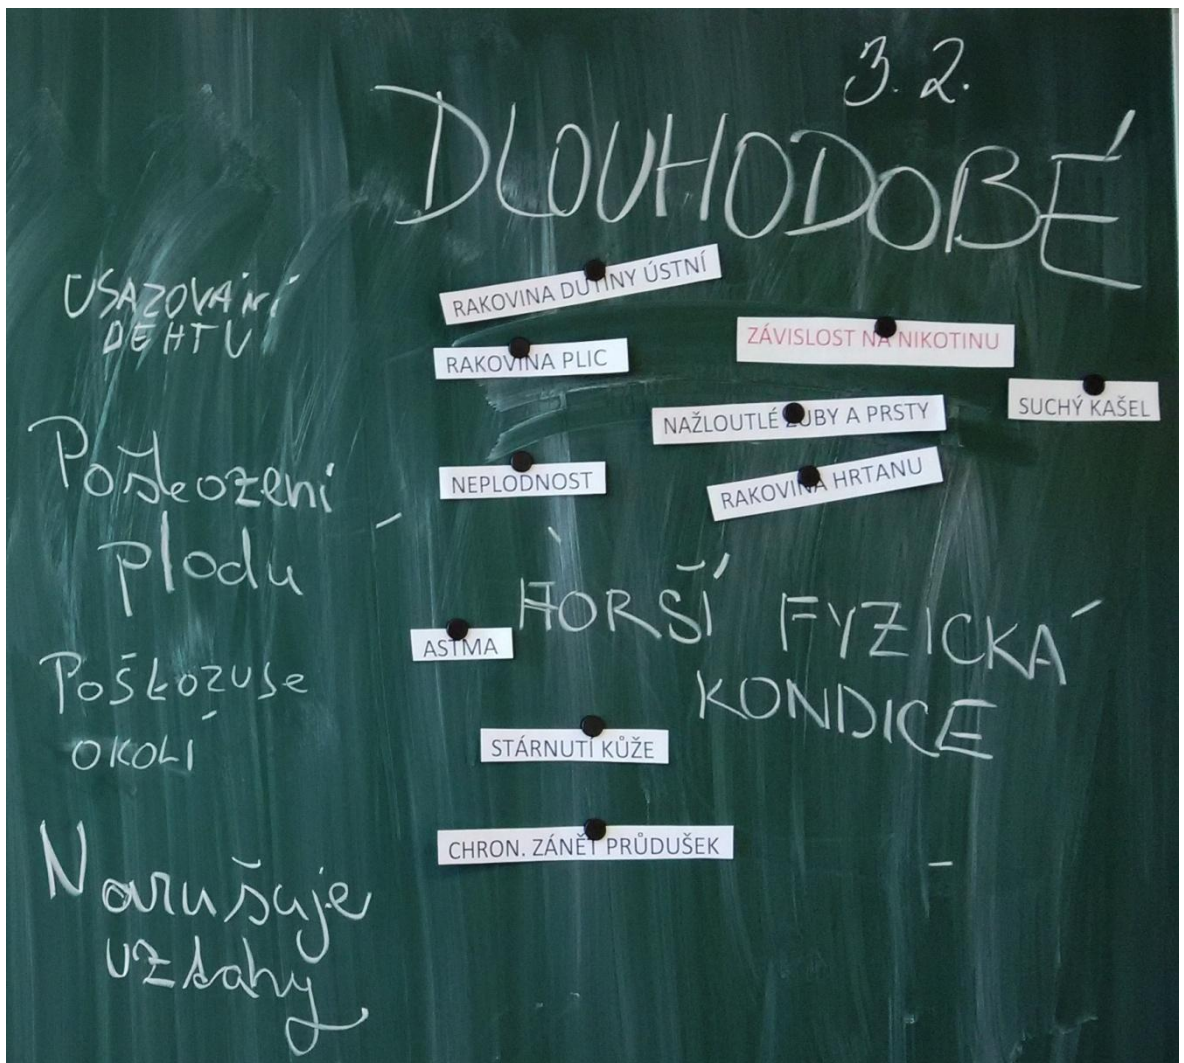 3. 2.
DLOUHODOBÉ
USAZOVÁNÍ
DEHTU
Poškození
plodu
Poškozuje
OKOLÍ
Narušuje
vztahy
RAKOVINA DUTINY ÚSTNÍ
ZÁVISLOST NA NIKOTINU
RAKOVINA PLIC
SUCHÝ KAŠEL
NAŽLOUTLÉ ZUBY A PRSTY
NEPLODNOST
RAKOVINA HRTANU
HORŠÍ FYZICKÁ
KONDICE
ASTMA
STÁRNUTÍ KŮŽE
CHRON. ZÁNĚT PRŮDUŠEK